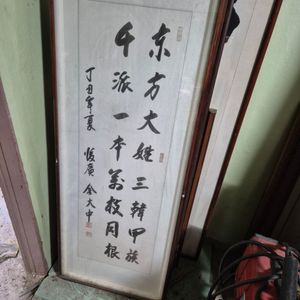 东方大姓三韓甲族
千派一本萬枝同根
丁丑年夏 後廣 金大中